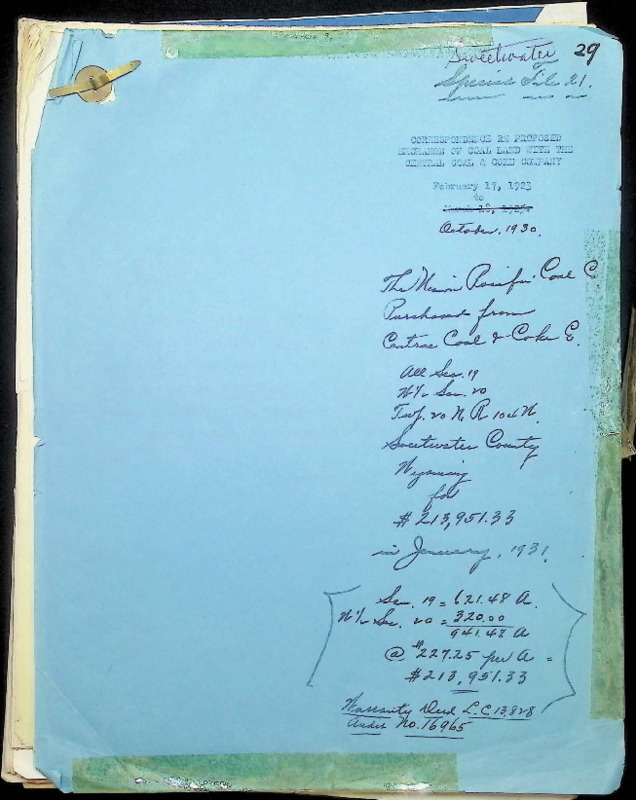 Sweetwater 29
Special File 21.
CORRESPONDENCE RE PROPOSED
EXCHANGE OF COAL LAND WITH THE
CENTRAL COAL & COKE COMPANY
February 17, 1923
to
October, 1930.
The Union Pacific Coal C
Purchased from
Central Coal & Coke C.
All Sec. 19
N½ Sec. 20
Twp. 20 N, R 104 W.
Sweetwater County
Wyoming
for
$213,951.33
in January, 1931.
Sec. 19 = 621.48 A.
N½ Sec. 20 = 320.00
941.48 A
@ $227.25 per A =
$213,951.33
Warranty Deed L.C. 13,828
Audit No. 16965